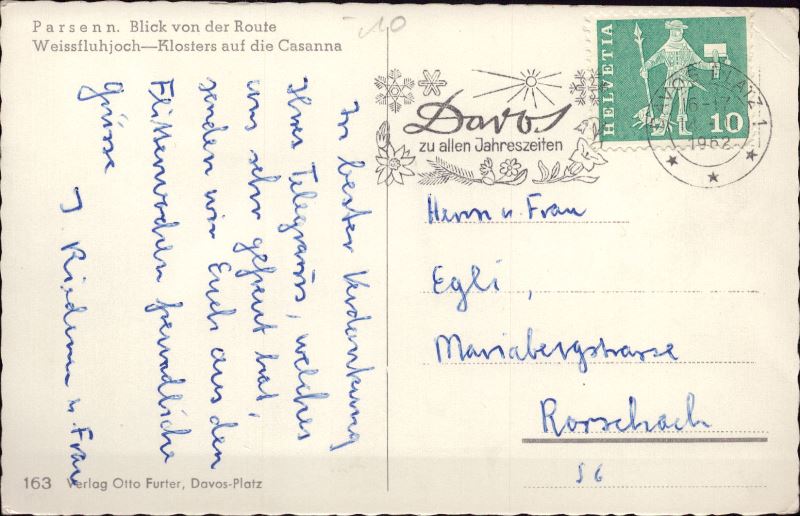 Parsenn. Blick von der Route
Weissfluhjoch—Klosters auf die Casanna
10
HELVETIA
10
Davos
zu allen Jahreszeiten
DAVOS PLATZ 1
1962
In bester Verdankung
Ihres Telegramms, welches
uns sehr gefreut hat,
senden wir Euch aus den
Flitterwochen freundliche
Grüsse
J. u. Frau
Herrn u. Frau
Egli,
Mariabergstrasse
Rorschach
SG
163 Verlag Otto Furter, Davos-Platz